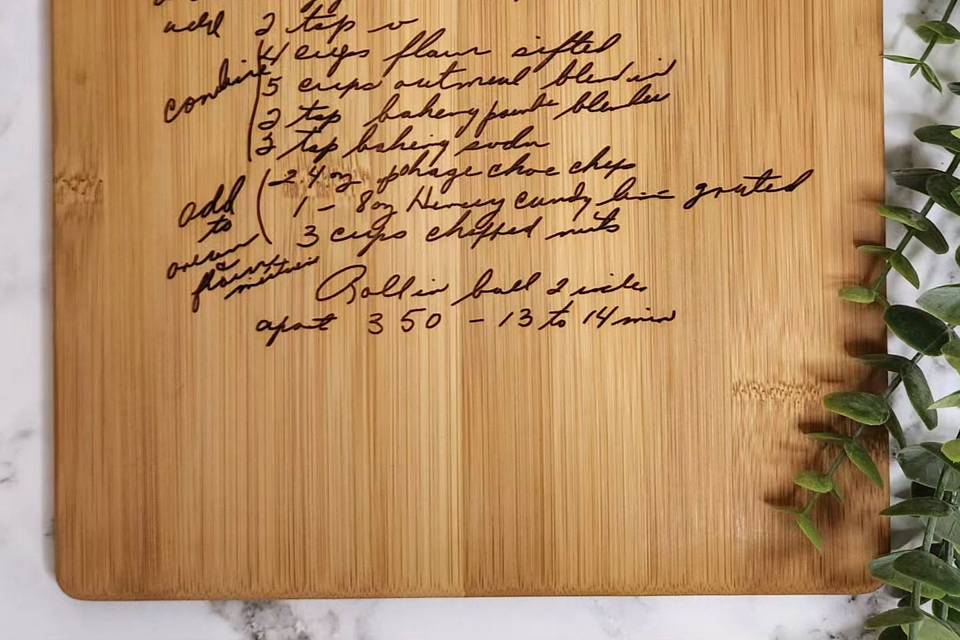 add 2 tsp v
combine 4 cups flour sifted
5 cups outmeal blend in
2 tsp bakeny powde blender
2 tsp baking soda
add 24 oz pkage choc chips
to 1 - 8oz Hersey candy bar grated
cream 3 cups chopped nuts
&
flour
mixture
Roll in ball 2 inches
apart 350 - 13 to 14 min